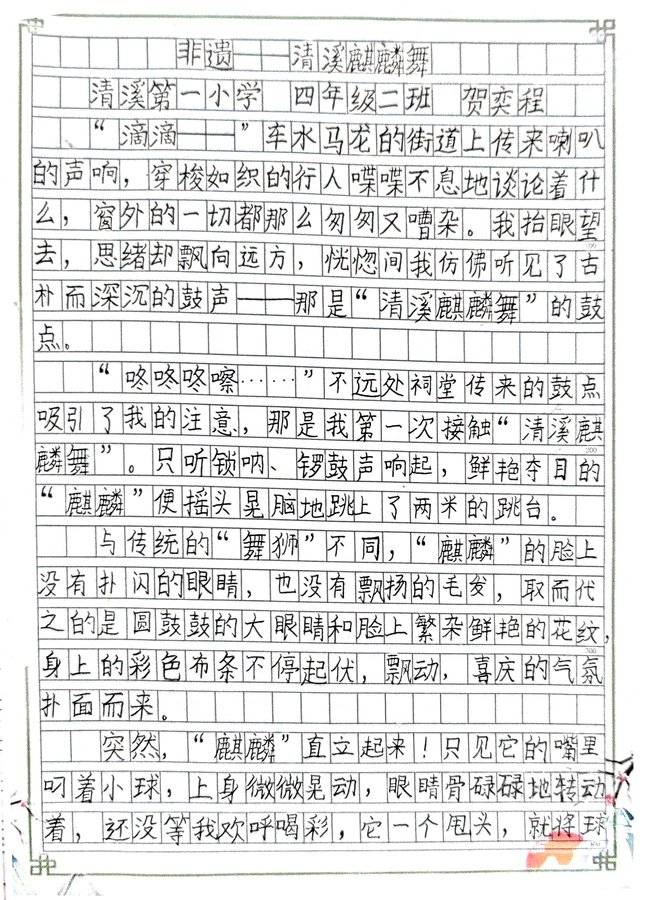 非遗——清溪麒麟舞
清溪第一小学 四年级二班 贺奕程
“滴滴——”车水马龙的街道上传来喇叭
的声响，穿梭如织的行人喋喋不息地谈论着什
么，窗外的一切都那么匆匆又嘈杂。我抬眼望
去，思绪却飘向远方，恍惚间我仿佛听见了古
朴而深沉的鼓声——那是“清溪麒麟舞”的鼓
点。
“咚咚咚嚓……”不远处祠堂传来的鼓点
吸引了我的注意，那是我第一次接触“清溪麒
麟舞”。只听锁呐、锣鼓声响起，鲜艳夺目的
“麒麟”便摇头晃脑地跳上了两米的跳台。
与传统的“舞狮”不同，“麒麟”的脸上
没有扑闪的眼睛，也没有飘扬的毛发，取而代
之的是圆鼓鼓的大眼睛和脸上繁杂鲜艳的花纹，
身上的彩色布条不停起伏，飘动，喜庆的气氛
扑面而来。
突然，“麒麟”直立起来！只见它的嘴里
叼着小球，上身微微晃动，眼睛骨碌碌地转动
着，还没等我欢呼喝彩，它一个甩头，就将球